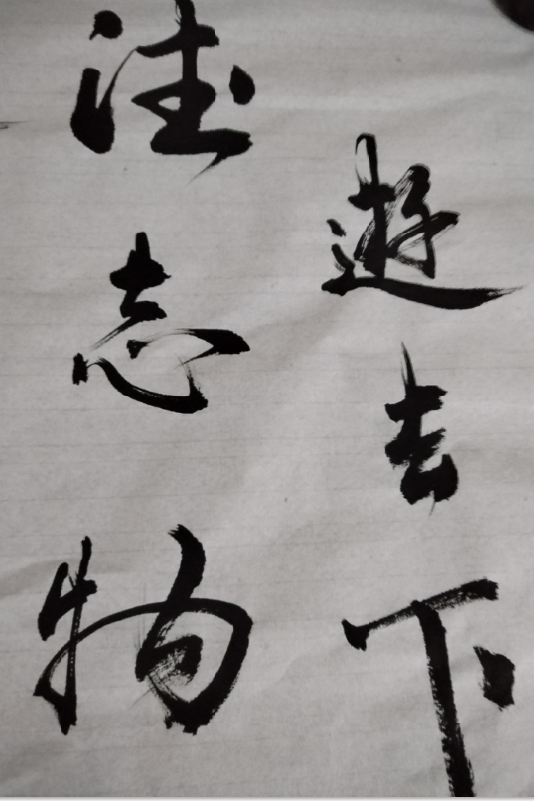 遊去下
志物